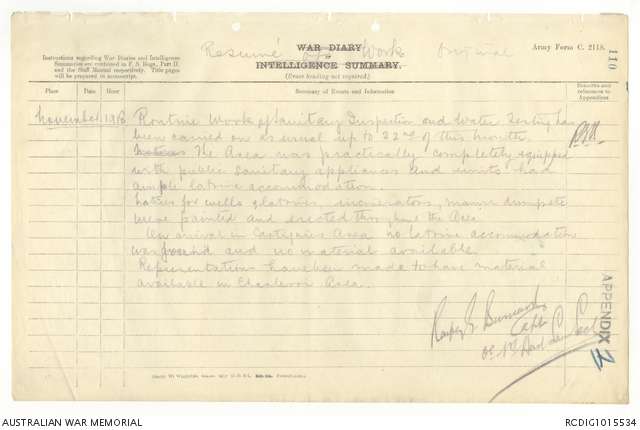 Resumé of Work Original
WAR DIARY
or
INTELLIGENCE SUMMARY.
(Erase heading not required.)
Army Form C. 2118.
110
Instructions regarding War Diaries and Intelligence
Summaries are contained in F. S. Regs., Part II.
and the Staff Manual respectively. Title pages
will be prepared in manuscript.
Place Date Hour Summary of Events and Information Remarks and references to Appendices
November 1918 Routine Work of Sanitary Inspection and Water Testing has
been carried on as usual up to 22nd of this month.
The Area was practically completely equipped
with public sanitary appliances and units had
ample latrine accommodation.
Notices for wells, latrines, incinerators, manure dumps etc
were painted and erected throughout the Area
On arrival in Area no latrine accommodation
was found and no material available.
Representations have been made to have material
available in Charleroi Area.
Capt
APPENDIX 2
AUSTRALIAN WAR MEMORIAL
RCDIG1015534